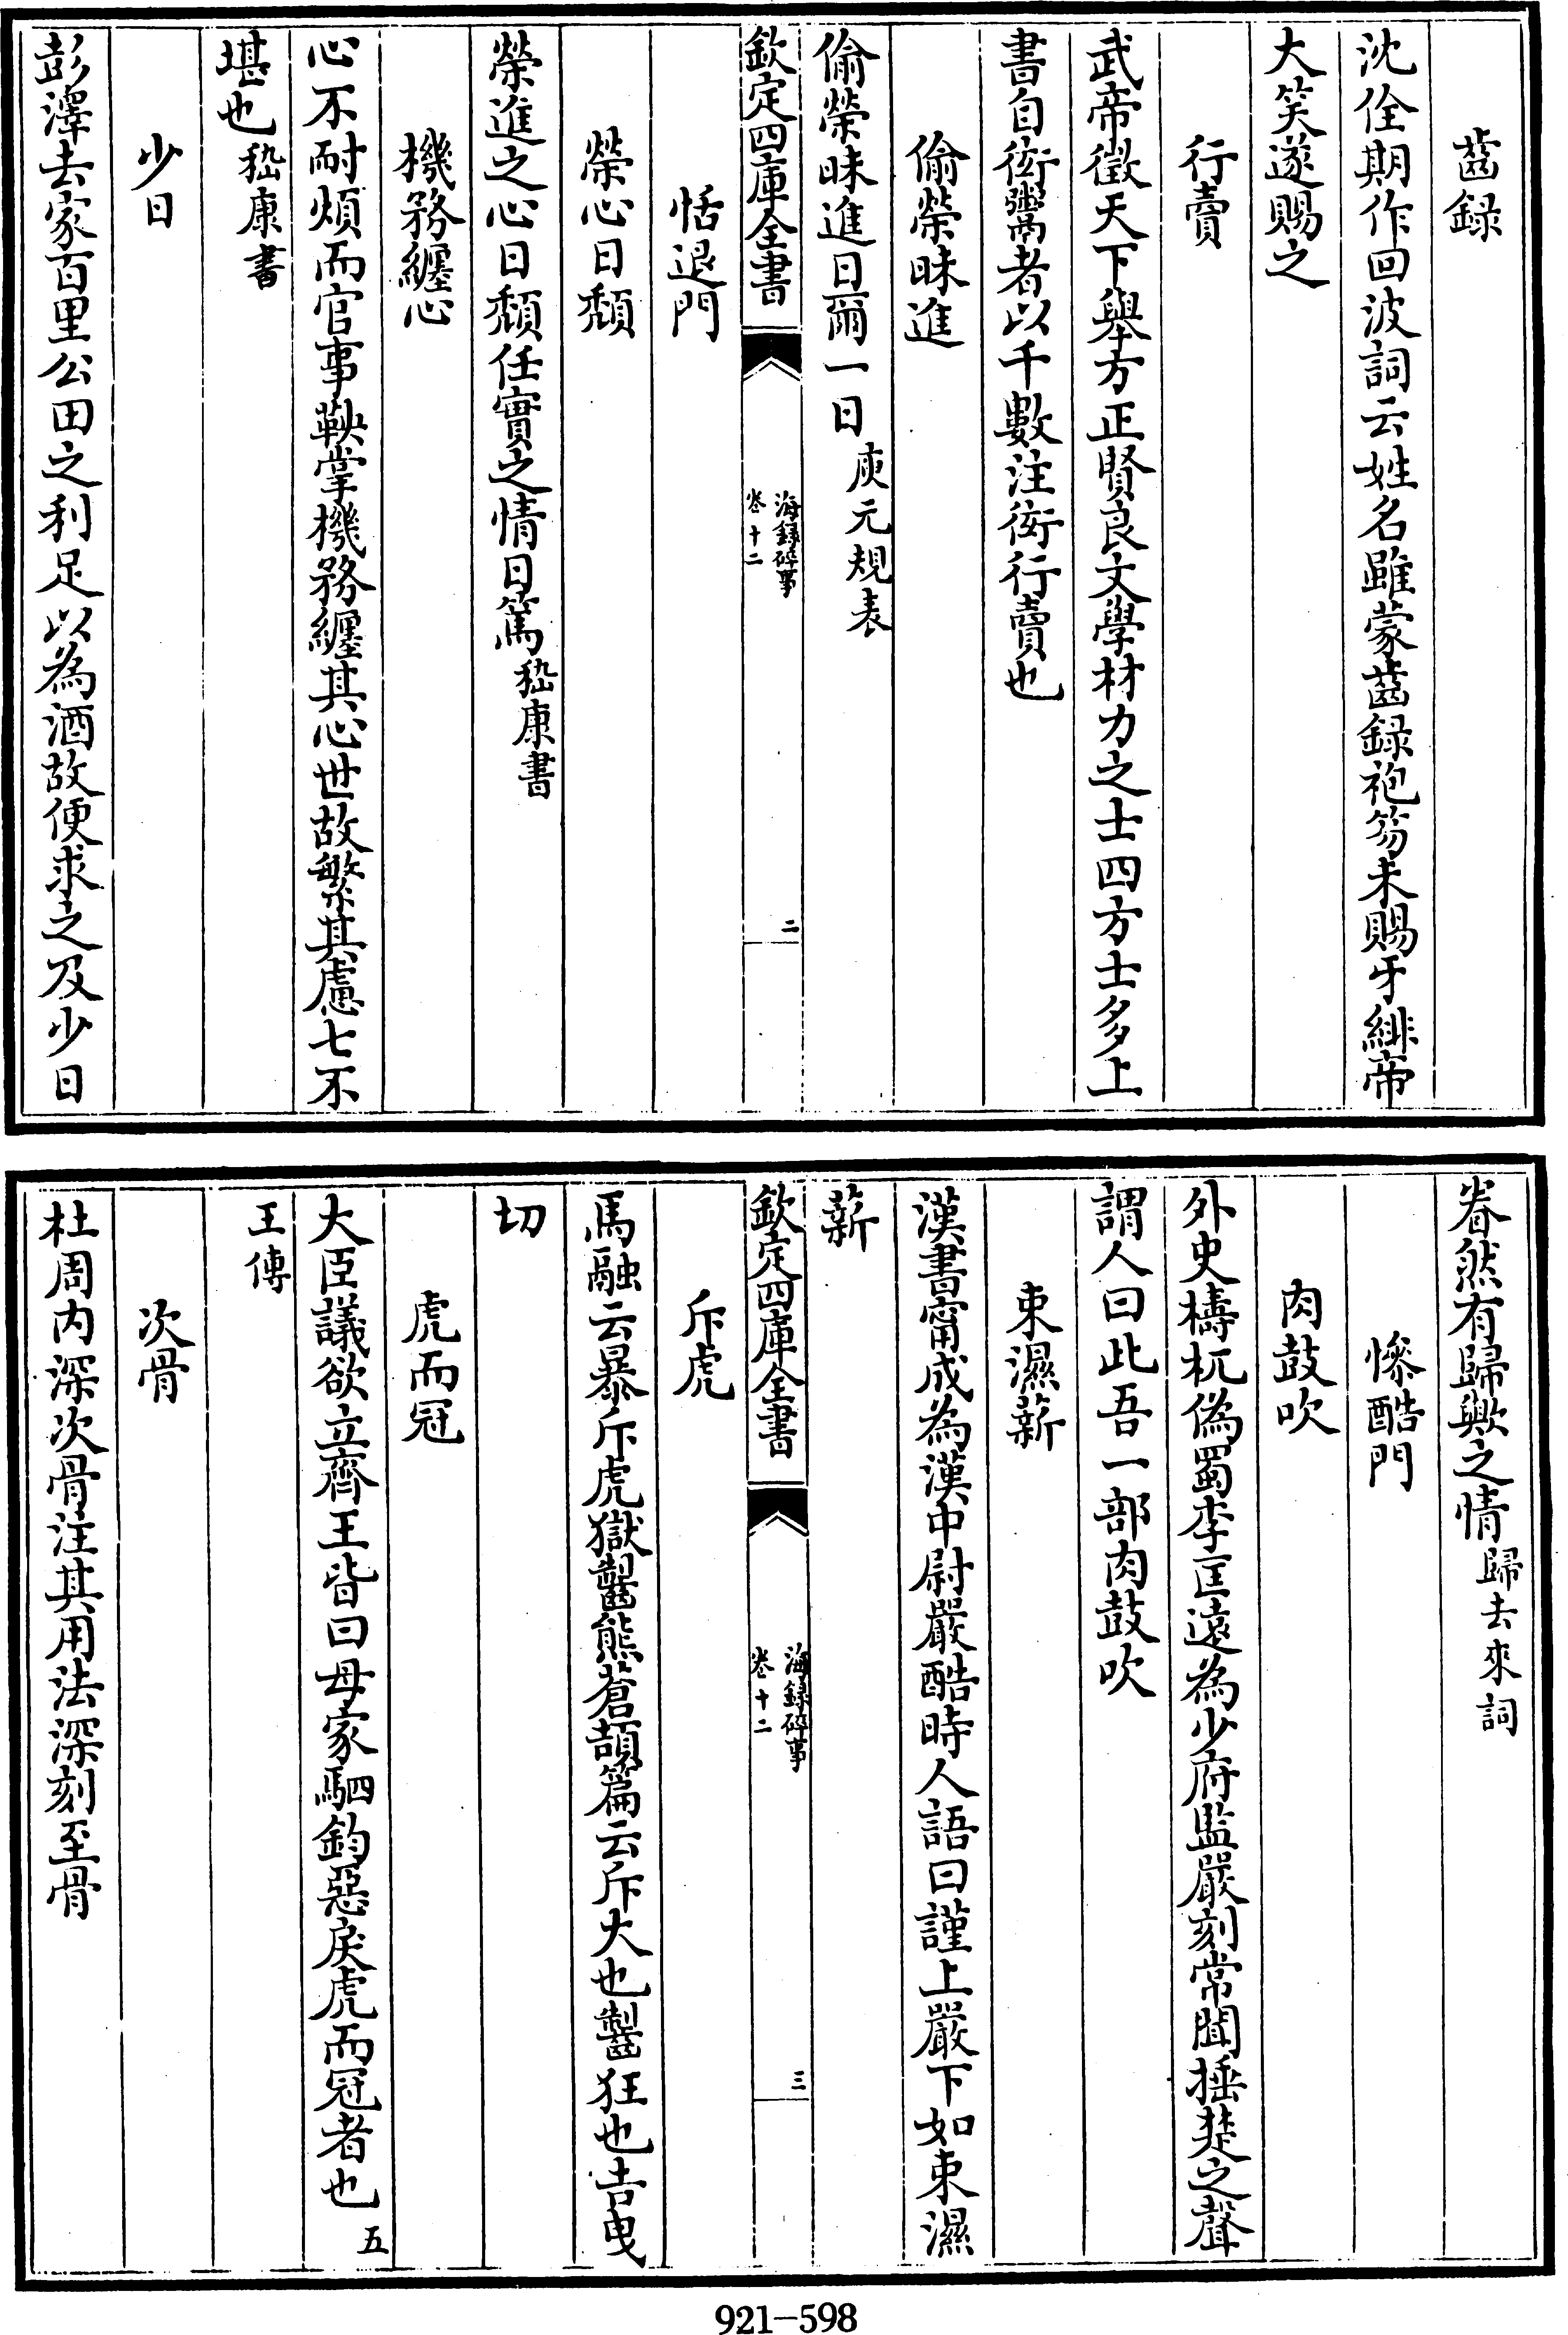 齒録
沈佺期作回波詞云姓名雖蒙齒録袍笏未賜牙緋帝
大笑遂賜之
行賣
武帝徵天下舉方正賢良文學材力之士四方士多上
書自衒鬻者以千數注衒行賣也
偷榮昧進
偷榮昧進日爾一日庾元規表
欽定四庫全書
海録碎事
卷十二
二
恬退門
榮心日頽
榮進之心日頽任實之情日篤嵇康書
機務纏心
心不耐煩而官事鞅掌機務纏其心世故繁其慮七不
堪也嵇康書
少日
彭澤去家百里公田之利足以為酒故便求之及少日
眷然有歸歟之情歸去來詞
慘酷門
肉鼓吹
外史檮杌偽蜀李匡遠為少府監嚴刻常聞捶楚之聲
謂人曰此吾一部肉鼓吹
束濕薪
漢書甯成為漢中尉嚴酷時人語曰謹上嚴下如束濕
薪
欽定四庫全書
海録碎事
卷十二
三
斥虎
馬融云暴斥虎獄齧熊蒼頡篇云斥大也齧狂也吉曳
切
虎而冠
大臣議欲立齊王皆曰母家駟鈞惡戾虎而冠者也五
王傳
次骨
杜周内深次骨注其用法深刻至骨
921-598